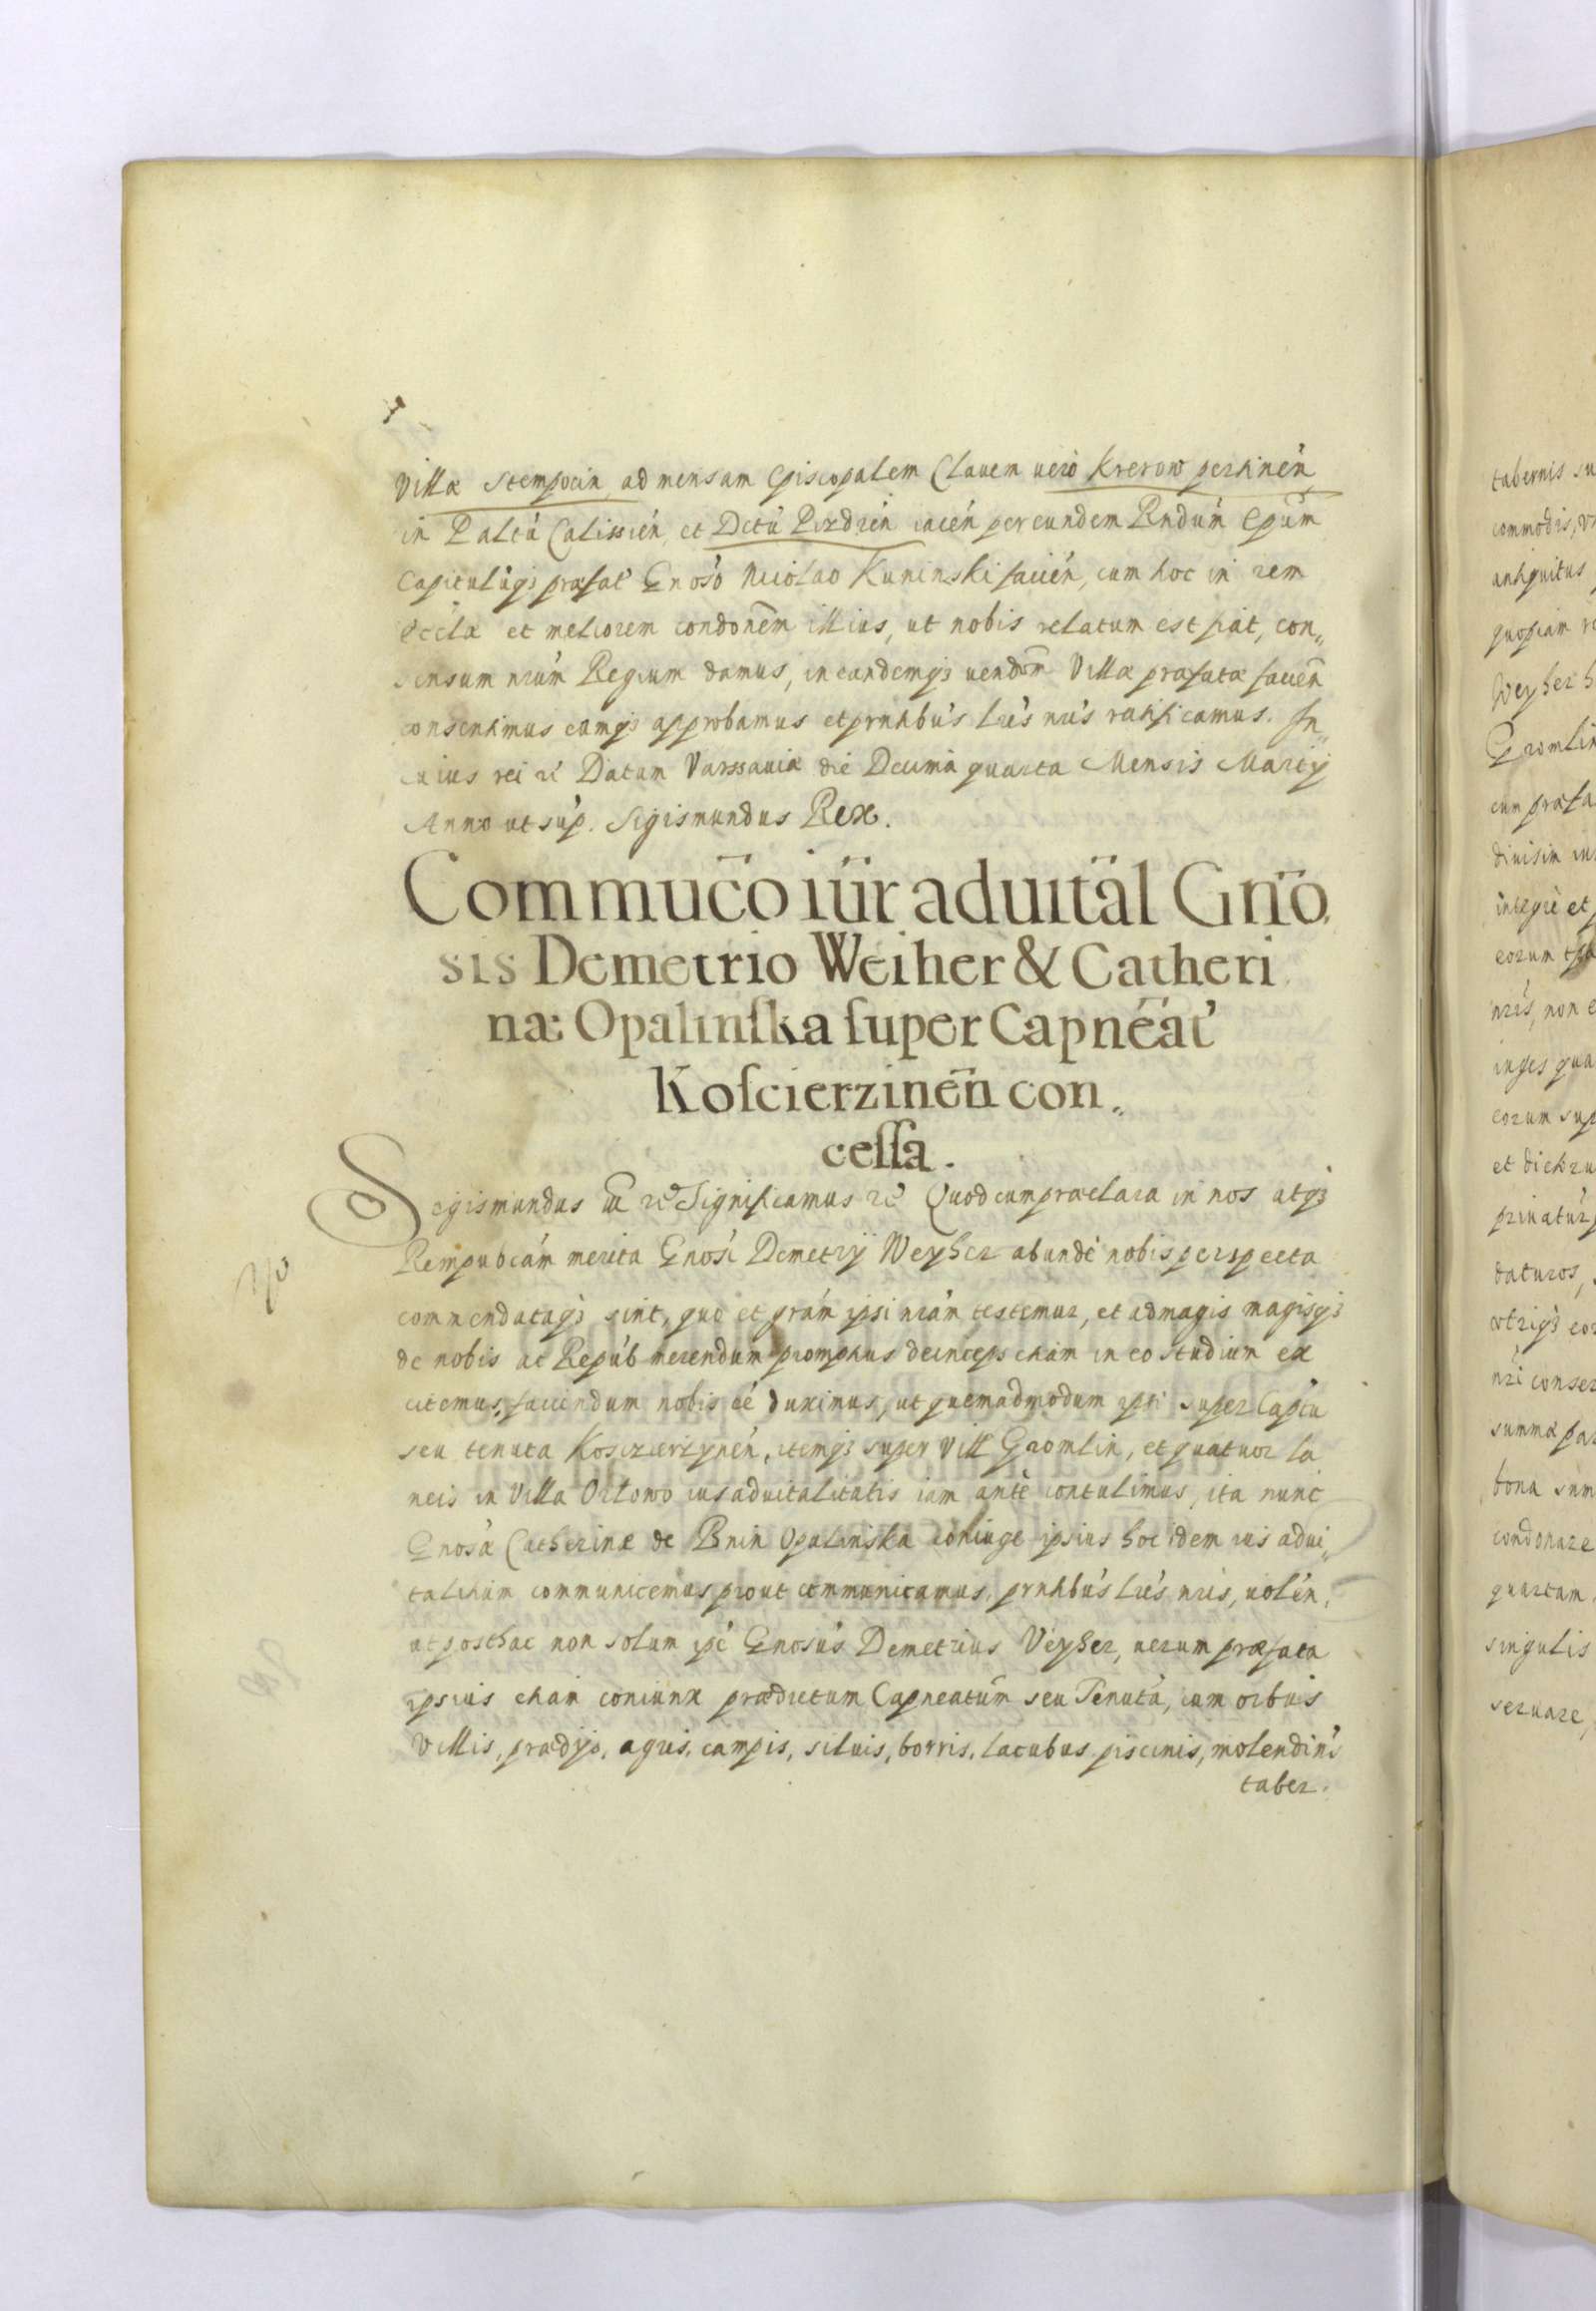 Villæ Stempocin ad mensam Episcopalem Clavem uero Krerow pertinén
in Paltú Calissién, et Dctú Pizdrién iacén per eundem Rndúm Epúm
Capitulúqз præfat Gnoso Nicolao Kuninski facién, cum hoc in rem
Ecclæ et meliorem condonem illius, ut nobis relatum est fiat, con„
sensum nrúm Regium damus, in eandemqз uendnem Villæ præfatæ facien
consentimus eamqз approbamus et pntibús lrís nrís ratificamus. In„
cuius rei rc Datum Varssauiæ die Decima quarta Mensis Martij
Anno ut súp. Sigismundus Rex.
Commuco iur aduital Gno,
sis Demetrio Weiher & Catheri
næ Opalinska super Capneat
Koscierzinen con„
cessa.
Sigismundus III rc Significamus rc Quod cum præclara in nos atqз
Rempubcám merita Gnosi Demetrij Weyher abunde nobis perspecta
commendataqз sint, quo et grám ipsi nrám testemur, et ad magis magisqз
de nobis ac Repúb merendum promptius deinceps etiam in eo studium ex
citemus, faciendum nobis eé duximus, ut quemadmodum ipsi super Captu
seu tenuta Koscierzynén, itemqз super Vill Gromlin, et quatuor la
neis in Villa Orlowo ius aduitalitatis iam ante contulimus, ita nunc
Gnosæ Catherinæ de Bnin Opalinska coniuge ipsius hoc idem ius adui„
talitium communicemus prout communicamus pntibús lrís nrís, uolén,
ut posthac non solum ipé Gnosús Demetrius Veyher, uerum præfata
ipsius etiam coniunx prædictum Capneatúm seu Tenutá, cum oibus
Villis, prædijs, agris, campis, siluis, borris, lacubus piscinis, molendinís
taber.
tabernis su
commodis, v
antiquitus
quopiam
Weyher h
Gromlin
cum præfa
diuisim
integre et
eorum
nrís, non
quæ
eorum sup
et
priuatúr
daturos,
eor
nri conser
summæ par
bona sum
condonare
quartam
singulis
seruare,